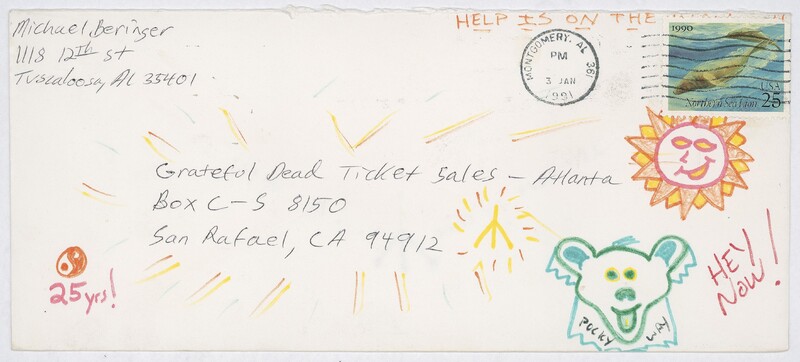 Michael Beringer
1118 12th St
Tuscaloosa, AL 35401
HELP IS ON THE
MONTGOMERY, AL 361
PM
3 JAN
1991
1990
Northern Sea Lion
USA
25
Grateful Dead Ticket Sales - Atlanta
Box C-S 8150
San Rafael, CA 94912
25 yrs!
HEY
NOW!
POCKY WAY